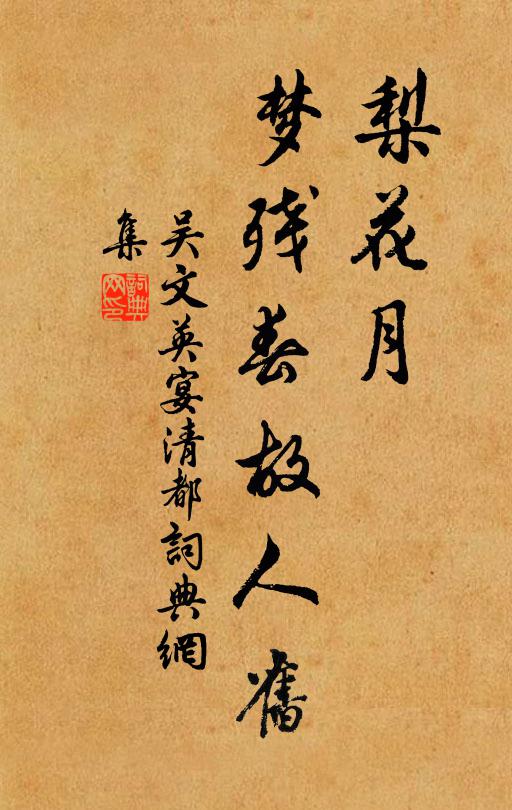 梨花月
梦残春故人舊
吴文英宴清都詞典網
集
詞典
网印